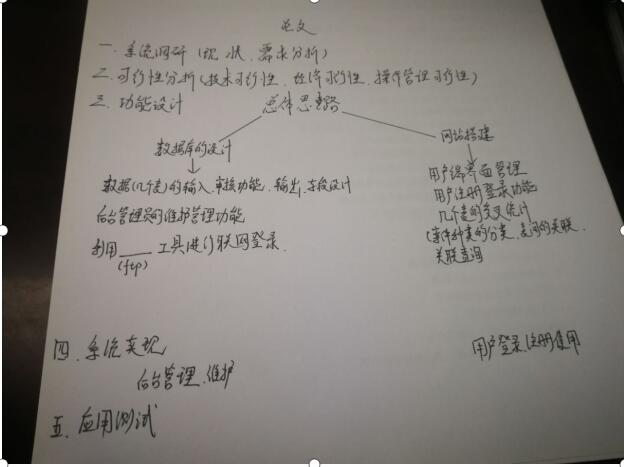 论文
一、系统调研(现状、需求分析)
二、可行性分析(技术可行性、经济可行性、操作管理可行性)
三、功能设计 总体思路
数据库的设计
数据(几个表)的输入、审核功能、输出、字段设计
后台管理员的维护管理功能
利用____工具进行联网登录.
(ftp)
网站搭建
用户端界面管理
用户注册登录功能
几个表的交叉统计
(案件种类的分类、表间的关联、
关联查询
四、系统实现
后台管理、维护
用户登录、注册使用
五、应用测试